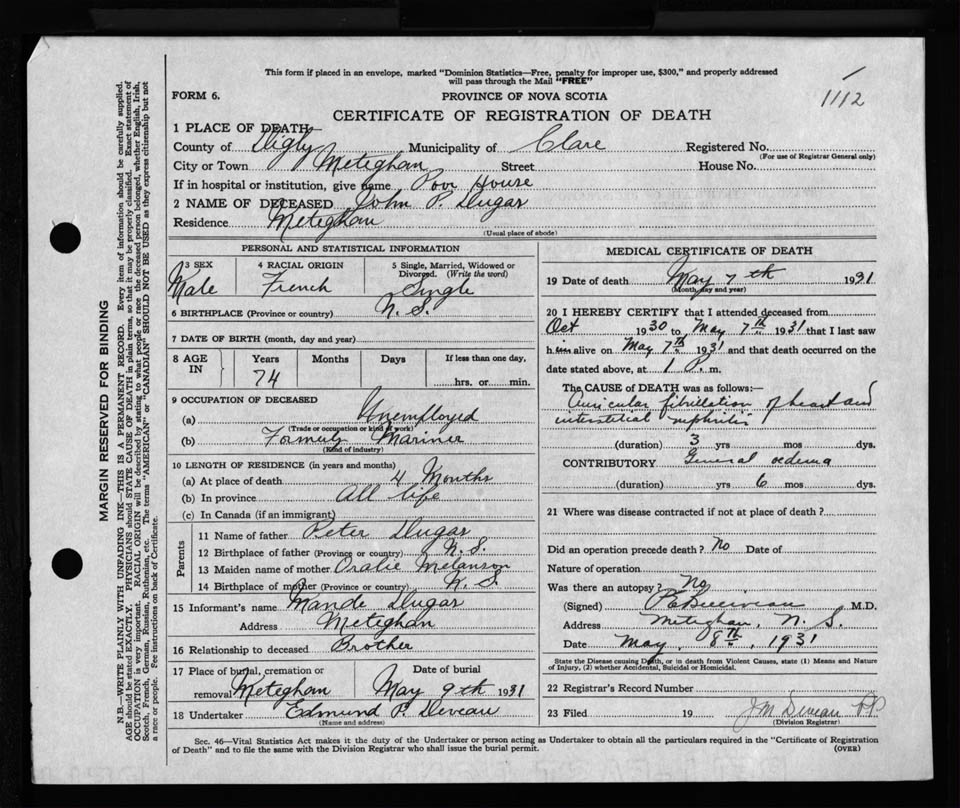 This form if placed in an envelope, marked "Dominion Statistics—Free, penalty for improper use, $300," and properly addressed
will pass through the Mail "FREE"
1112
FORM 6.
PROVINCE OF NOVA SCOTIA
CERTIFICATE OF REGISTRATION OF DEATH
1 PLACE OF DEATH
County of Digby Municipality of Clare Registered No.
(For use of Registrar General only)
City or Town Meteghan Street House No.
If in hospital or institution, give name Poor House
2 NAME OF DECEASED John P. Dugas
Residence Meteghan
(Usual place of abode)
PERSONAL AND STATISTICAL INFORMATION
3 SEX 4 RACIAL ORIGIN 5 Single, Married, Widowed or
Divorced. (Write the word)
Male French Single
6 BIRTHPLACE (Province or country) N. S.
7 DATE OF BIRTH (month, day and year)
8 AGE IN Years Months Days If less than one day,
74 hrs. or min.
9 OCCUPATION OF DECEASED
(a) Unemployed
(Trade or occupation or kind of work)
(b) Formerly Mariner
(Kind of industry)
10 LENGTH OF RESIDENCE (in years and months)
(a) At place of death 4 Months
(b) In province All life
(c) In Canada (if an immigrant)
Parents
11 Name of father Peter Dugas
12 Birthplace of father (Province or country) N. S.
13 Maiden name of mother Oralie Melanson
14 Birthplace of mother (Province or country) N. S.
15 Informant's name Mande Dugas
Address Meteghan
16 Relationship to deceased Brother
17 Place of burial, cremation or Date of burial
removal Meteghan May 9th 1931
18 Undertaker Edmund P. Deveau
(Name and address)
MEDICAL CERTIFICATE OF DEATH
19 Date of death May 7th 1931
(Month, day and year)
20 I HEREBY CERTIFY that I attended deceased from
Oct 1930 to May 7th 1931 that I last saw
h im alive on May 7th 1931 and that death occurred on the
date stated above, at 1 P. m.
The CAUSE OF DEATH was as follows:—
Auricular fibrillation of heart and
interstitial nephritis
(duration) 3 yrs mos dys.
CONTRIBUTORY General oedema
(duration) yrs 6 mos dys.
21 Where was disease contracted if not at place of death?
Did an operation precede death? No Date of
Nature of operation
Was there an autopsy? No
(Signed) M.D.
Address Meteghan, N. S.
Date May, 8th, 1931
State the Disease causing Death, or in death from Violent Causes, state (1) Means and Nature
of Injury, (2) whether Accidental, Suicidal or Homicidal.
22 Registrar's Record Number
23 Filed 19 J M Deveau
(Division Registrar)
Sec. 46—Vital Statistics Act makes it the duty of the Undertaker or person acting as Undertaker to obtain all the particulars required in the "Certificate of Registration
of Death" and to file the same with the Division Registrar who shall issue the burial permit.
(OVER)
MARGIN RESERVED FOR BINDING
N.B.—WRITE PLAINLY WITH UNFADING INK—THIS IS A PERMANENT RECORD. Every item of information should be carefully supplied.
AGE should be stated EXACTLY. PHYSICIANS should STATE CAUSE OF DEATH in plain terms, so that it may be properly classified. Exact statement of
OCCUPATION is very important. RACIAL ORIGIN will be described by stating to what people or race the deceased person belonged, whether English, Irish,
Scotch, French, German, Russian, Ruthenian, etc. The terms "AMERICAN" or "CANADIAN" SHOULD NOT BE USED as they express citizenship but not
a race or people. Fee instructions on back of Certificate.